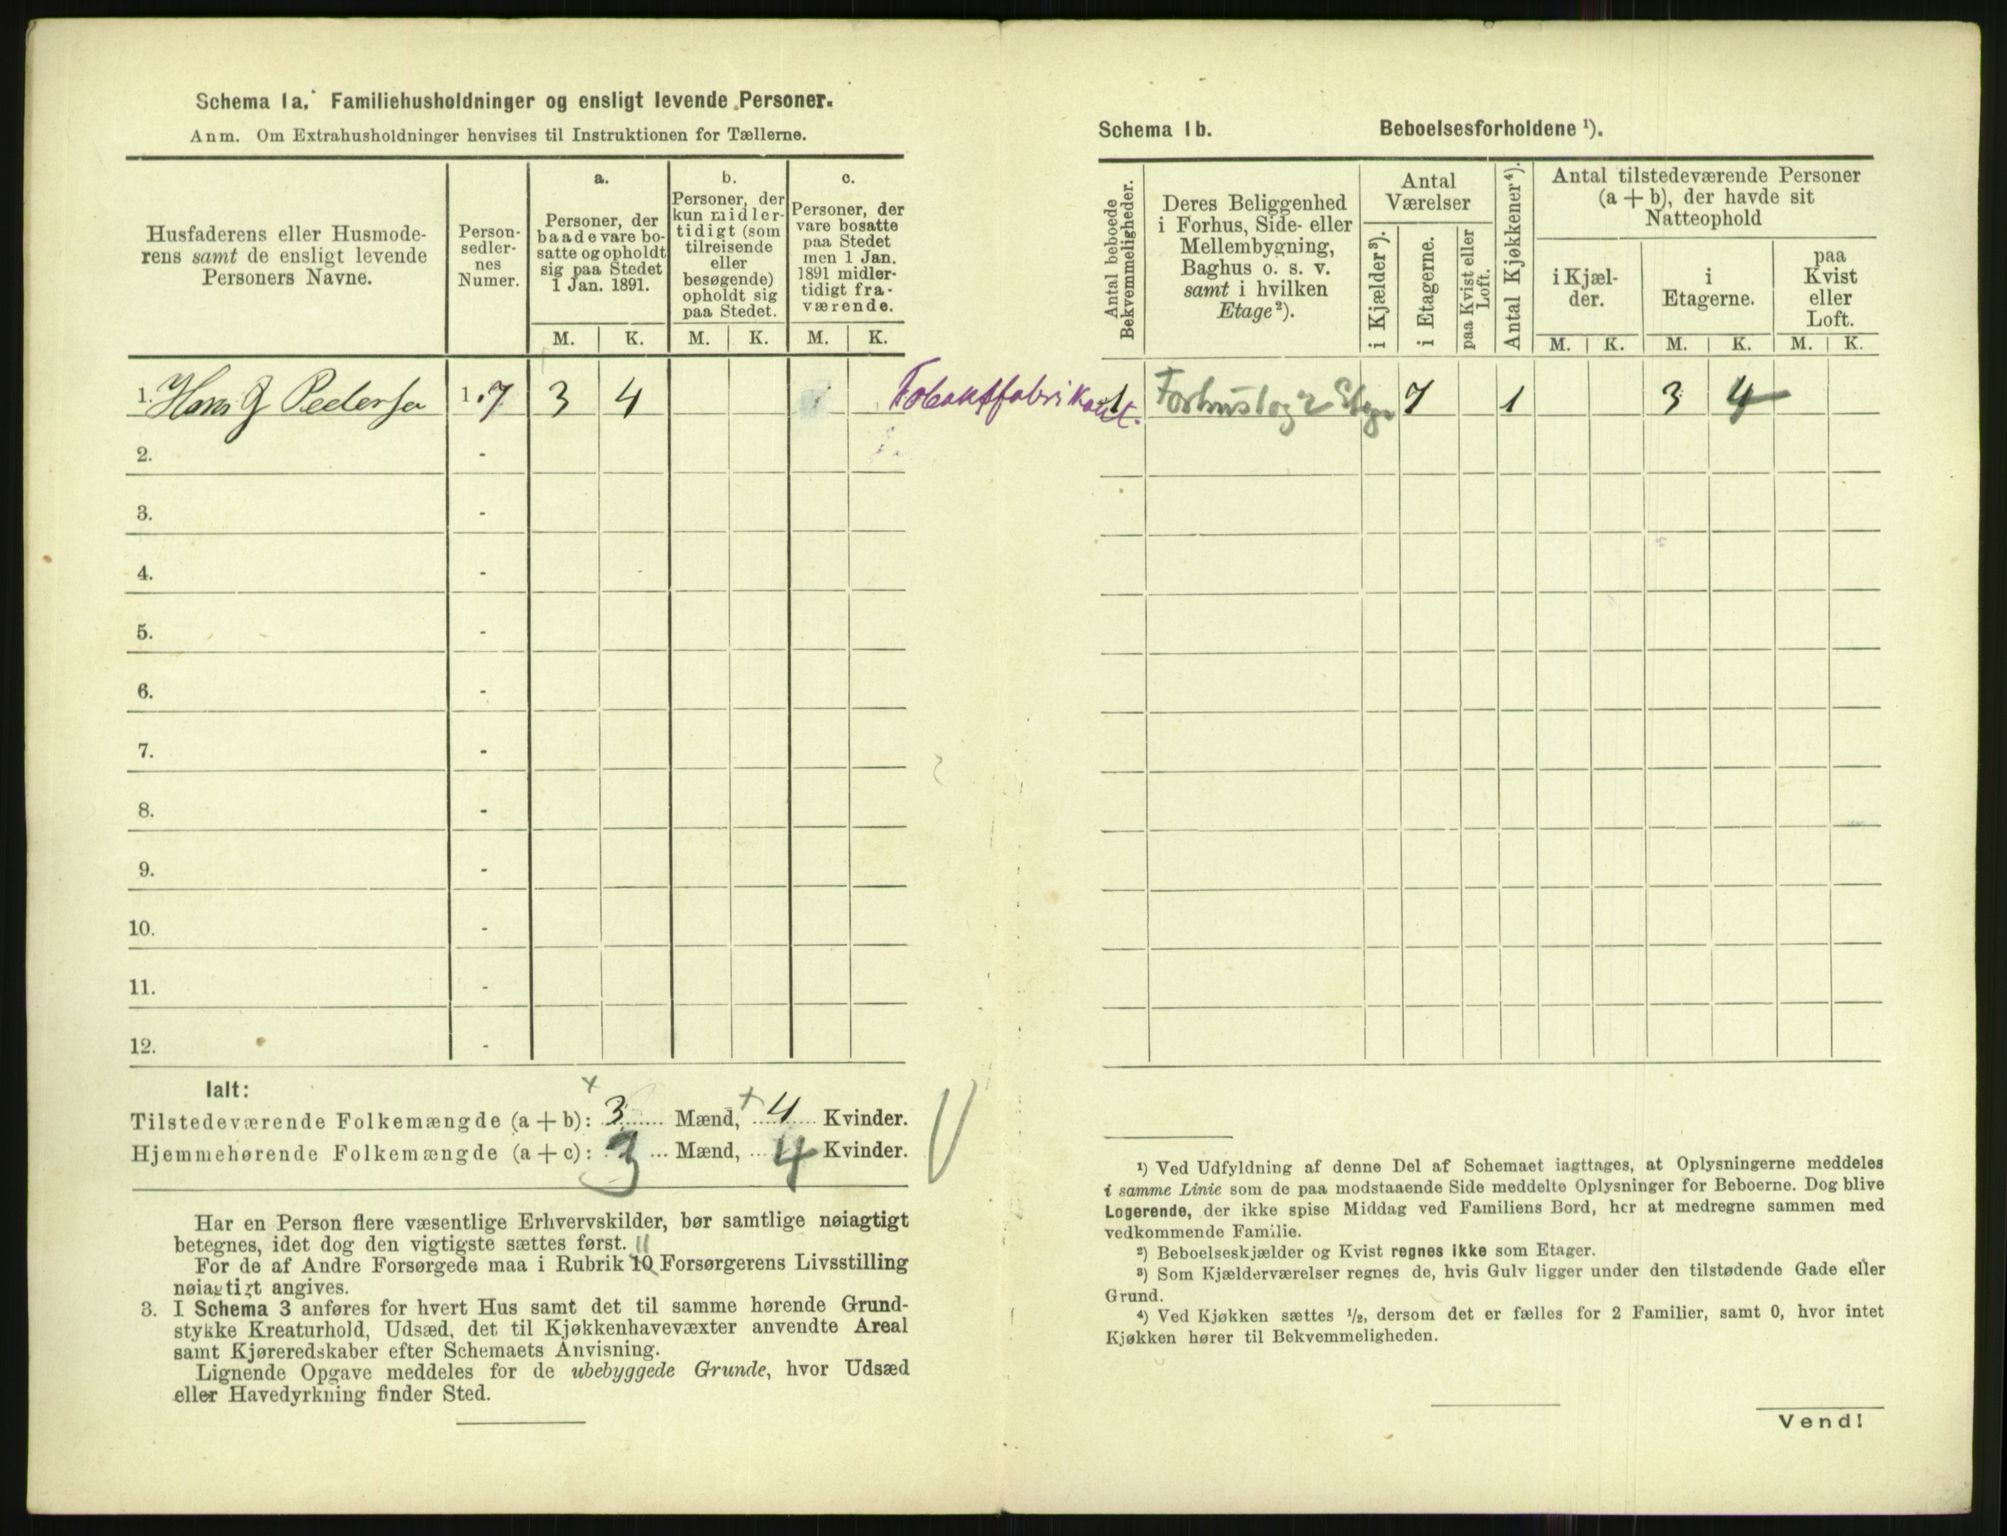 Schema 1a. Familiehusholdninger og ensligt levende Personer.
Anm. Om Extrahusholdninger henvises til Instruktionen for Tællerne.
Husfaderens eller Husmode-
rens samt de ensligt levende
Personers Navne.
Person-
sedler-
nes
Numer.
a.
Personer, der
baade vare bo-
satte og opholdt
sig paa Stedet
1 Jan. 1891.
b.
Personer, der
kun midler-
tidigt (som
tilreisende
eller
besøgende)
opholdt sig
paa Stedet.
c.
Personer, der
vare bosatte
paa Stedet
men 1 Jan.
1891 midler-
tidigt fra-
værende.
M. K. M. K. M. K.
1. Hans J Pedersen 1.7 3 4
2. -
3. -
4. -
5. -
6. -
7. -
8. -
9. -
10. -
11. -
12. -
Ialt:
Tilstedeværende Folkemængde (a + b): 3 Mænd, 4 Kvinder.
Hjemmehørende Folkemængde (a + c): 3 Mænd, 4 Kvinder.
Har en Person flere væsentlige Erhvervskilder, bør samtlige nøiagtigt
betegnes, idet dog den vigtigste sættes først.
11
For de af Andre Forsørgede maa i Rubrik 10 Forsørgerens Livsstilling
nøiagtigt angives.
3. I Schema 3 anføres for hvert Hus samt det til samme hørende Grund-
stykke Kreaturhold, Udsæd, det til Kjøkkenhavevæxter anvendte Areal
samt Kjøreredskaber efter Schemaets Anvisning.
Lignende Opgave meddeles for de ubebyggede Grunde, hvor Udsæd
eller Havedyrkning finder Sted.
Schema 1b. Beboelsesforholdene ¹).
Antal beboede
Bekvemmeligheder.
Deres Beliggenhed
i Forhus, Side- eller
Mellembygning,
Baghus o. s. v.
samt i hvilken
Etage ²).
Antal
Værelser
i Kjælder ³).
i Etagerne.
paa Kvist eller
Loft.
Antal Kjøkkener ⁴).
Antal tilstedeværende Personer
(a + b), der havde sit
Natteophold
i Kjæl-
der.
i
Etagerne.
paa
Kvist
eller
Loft.
M. K. M. K. M. K.
Tobaksfabrikant. 1 Forhus 1 og 2 Etage 7 1 3 4
¹) Ved Udfyldning af denne Del af Schemaet iagttages, at Oplysningerne meddeles
i samme Linie som de paa modstaaende Side meddelte Oplysninger for Beboerne. Dog blive
Logerende, der ikke spise Middag ved Familiens Bord, her at medregne sammen med
vedkommende Familie.
²) Beboelseskjælder og Kvist regnes ikke som Etager.
³) Som Kjælderværelser regnes de, hvis Gulv ligger under den tilstødende Gade eller
Grund.
⁴) Ved Kjøkken sættes ½, dersom det er fælles for 2 Familier, samt 0, hvor intet
Kjøkken hører til Bekvemmeligheden.
Vend!